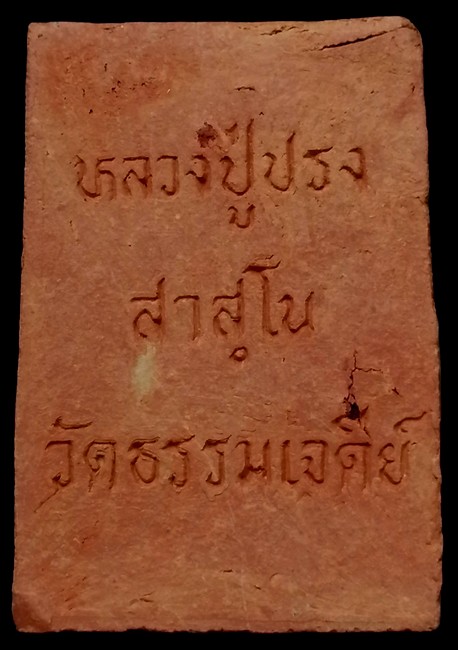 หลวงปู่ปรง
สาสุโน
วัดธรรมเจดีย์